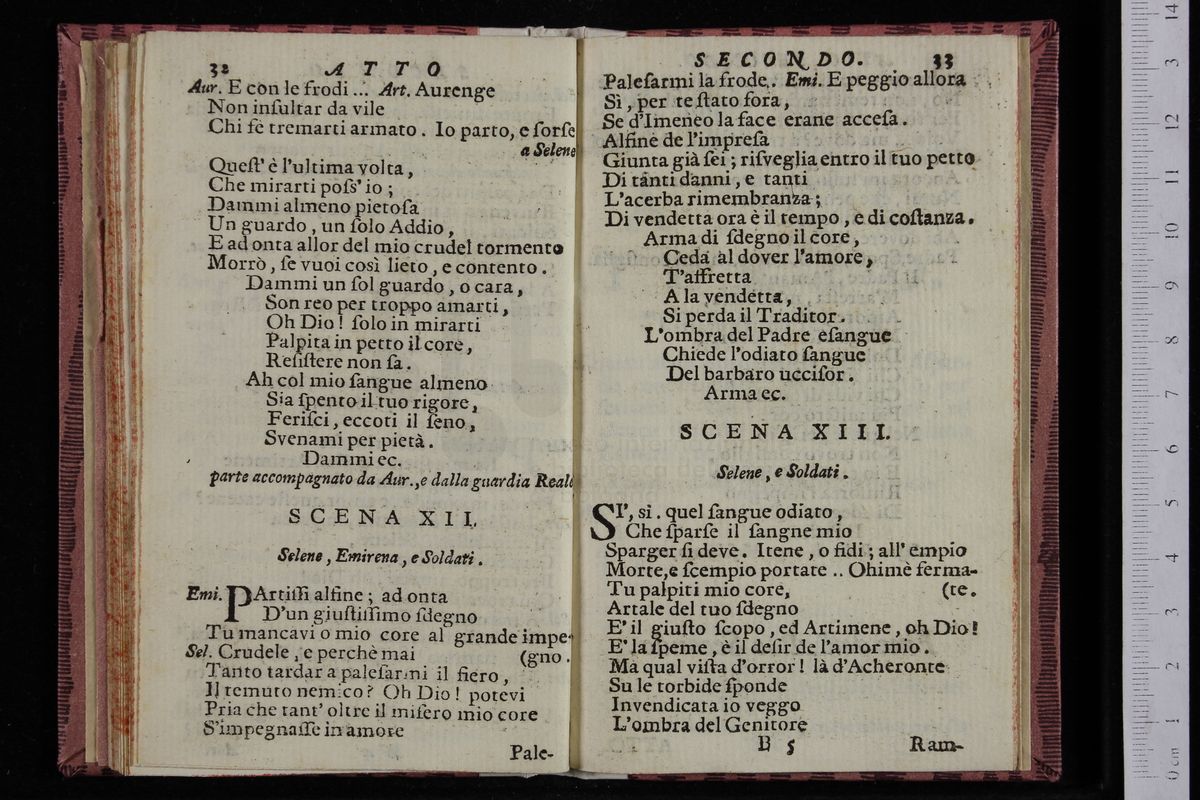 32 ATTO
Aur. E con le frodi... Art. Aurenge
Non inſultar da vile
Chi fè tremarti armato. Io parto, e forſe
a Selene
Queſt' è l'ultima volta,
Che mirarti poſs' io;
Dammi almeno pietoſa
Un guardo, un ſolo Addio,
E ad onta allor del mio crudel tormento
Morrò, ſe vuoi così lieto, e contento.
Dammi un ſol guardo, o cara,
Son reo per troppo amarti,
Oh Dio! ſolo in mirarti
Palpita in petto il core,
Reſiſtere non ſa.
Ah col mio ſangue almeno
Sia ſpento il tuo rigore,
Feriſci, eccoti il ſeno,
Svenami per pietà.
Dammi ec.
parte accompagnato da Aur., e dalla guardia Reale
SCENA XII.
Selene, Emirena, e Soldati.
Emi. PArtiſſi alfine; ad onta
D'un giuſtiſſimo ſdegno
Tu mancavi o mio core al grande impe-
Sel. Crudele, e perchè mai (gno.
Tanto tardar a paleſarmi il fiero,
Il temuto nemico? Oh Dio! potevi
Pria che tant' oltre il miſero mio core
S'impegnaſſe in amore
Pale-
SECONDO. 33
Paleſarmi la frode.. Emi. E peggio allora
Sì, per te ſtato fora,
Se d'Imeneo la face erane acceſa.
Alfine de l'impreſa
Giunta già ſei; riſveglia entro il tuo petto
Di tanti danni, e tanti
L'acerba rimembranza;
Di vendetta ora è il tempo, e di coſtanza.
Arma di ſdegno il core,
Ceda al dover l'amore,
T'affretta
A la vendetta,
Si perda il Traditor.
L'ombra del Padre eſangue
Chiede l'odiato ſangue
Del barbaro ucciſor.
Arma ec.
SCENA XIII.
Selene, e Soldati.
SI', sì. quel ſangue odiato,
Che ſparſe il ſangne mio
Sparger ſi deve. Itene, o fidi; all' empio
Morte, e ſcempio portate .. Ohimè ferma-
Tu palpiti mio core, (te.
Artale del tuo ſdegno
E' il giuſto ſcopo, ed Artimene, oh Dio!
E' la ſpeme, è il deſir de l'amor mio.
Ma qual viſta d'orror! là d'Acheronte
Su le torbide ſponde
Invendicata io veggo
L'ombra del Genitore
B 5 Ram-